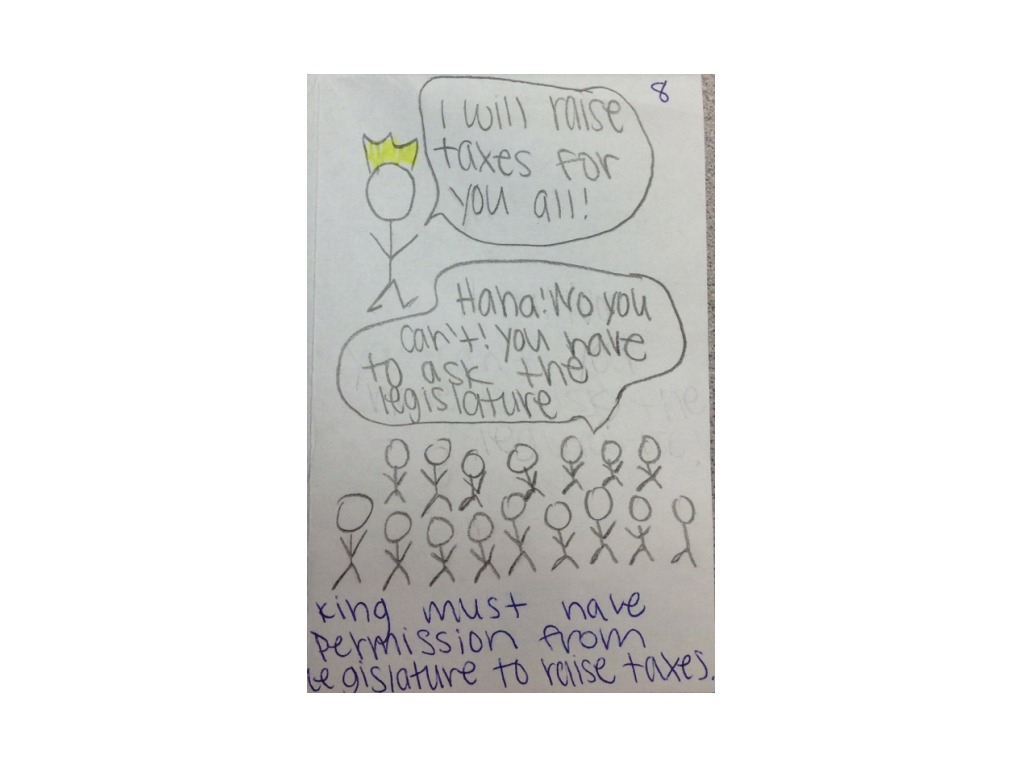 8
I will raise
taxes for
you all!
Haha! No you
can't! you have
to ask the
legislature
king must have
permission from
legislature to raise taxes.